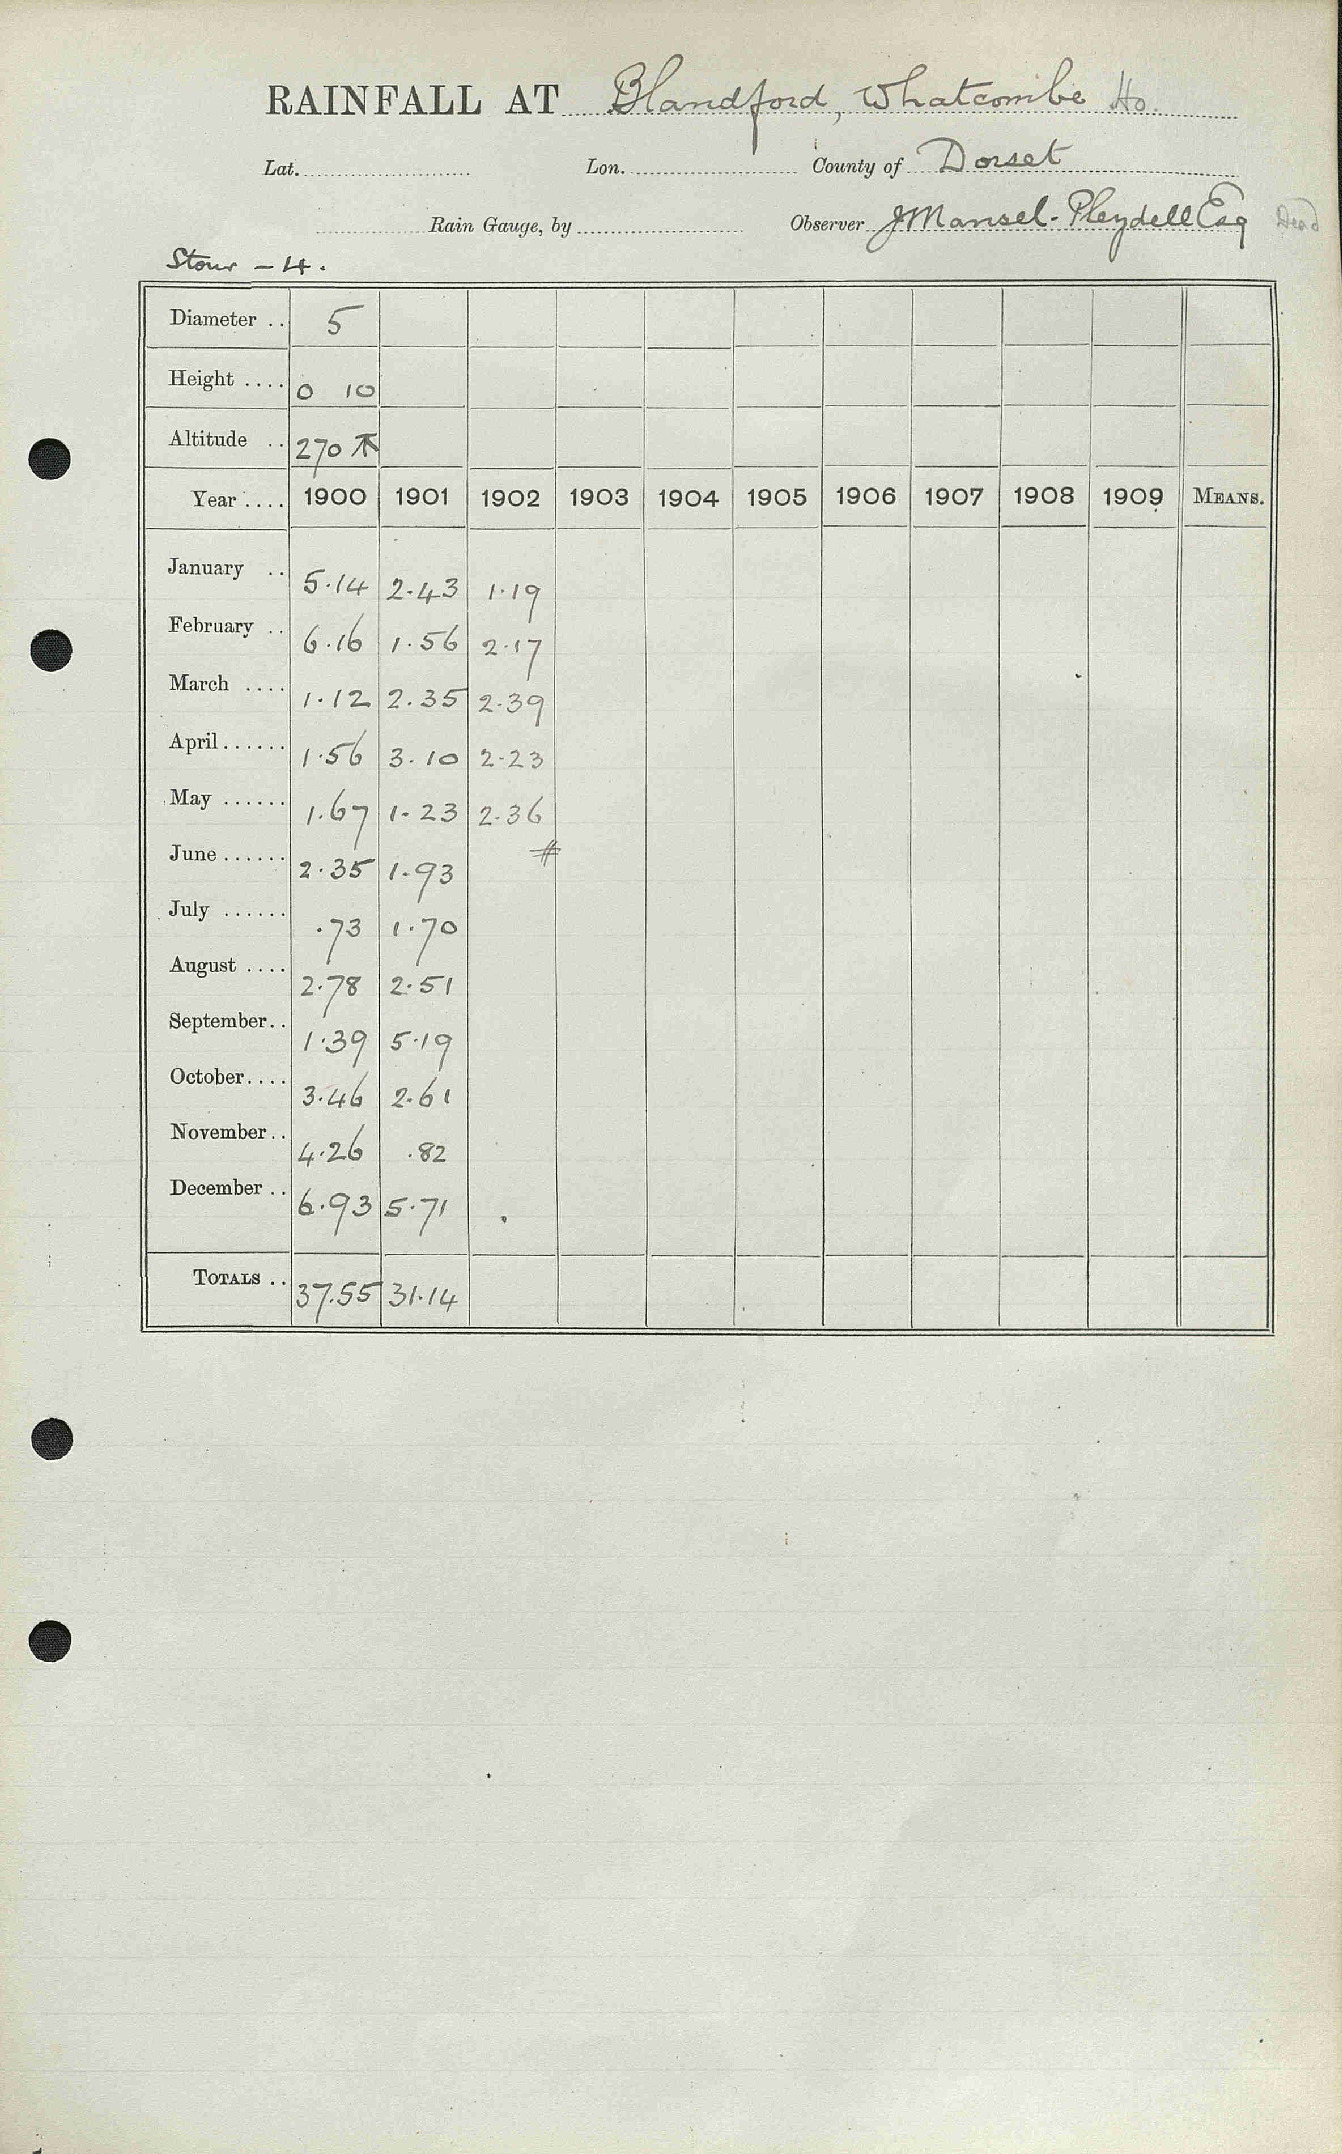 RAINFALL AT Blandford, Whatcombe Ho.
Lat. Lon. County of Dorset
Rain Gauge, by Observer J Mansel-Pleydell Esq Dead
Stour - 4.
Diameter .. 5
Height .... 0 10
Altitude .. 270
Year .... 1900 1901 1902 1903 1904 1905 1906 1907 1908 1909 MEANS.
January .. 5.14 2.43 1.19
February .. 6.16 1.56 2.17
March .... 1.12 2.35 2.39
April ...... 1.56 3.10 2.23
May ...... 1.67 1.23 2.36
June ...... 2.35 1.93 #
July ...... .73 1.70
August .... 2.78 2.51
September .. 1.39 5.19
October .... 3.46 2.61
November .. 4.26 .82
December .. 6.93 5.71
TOTALS .. 37.55 31.14